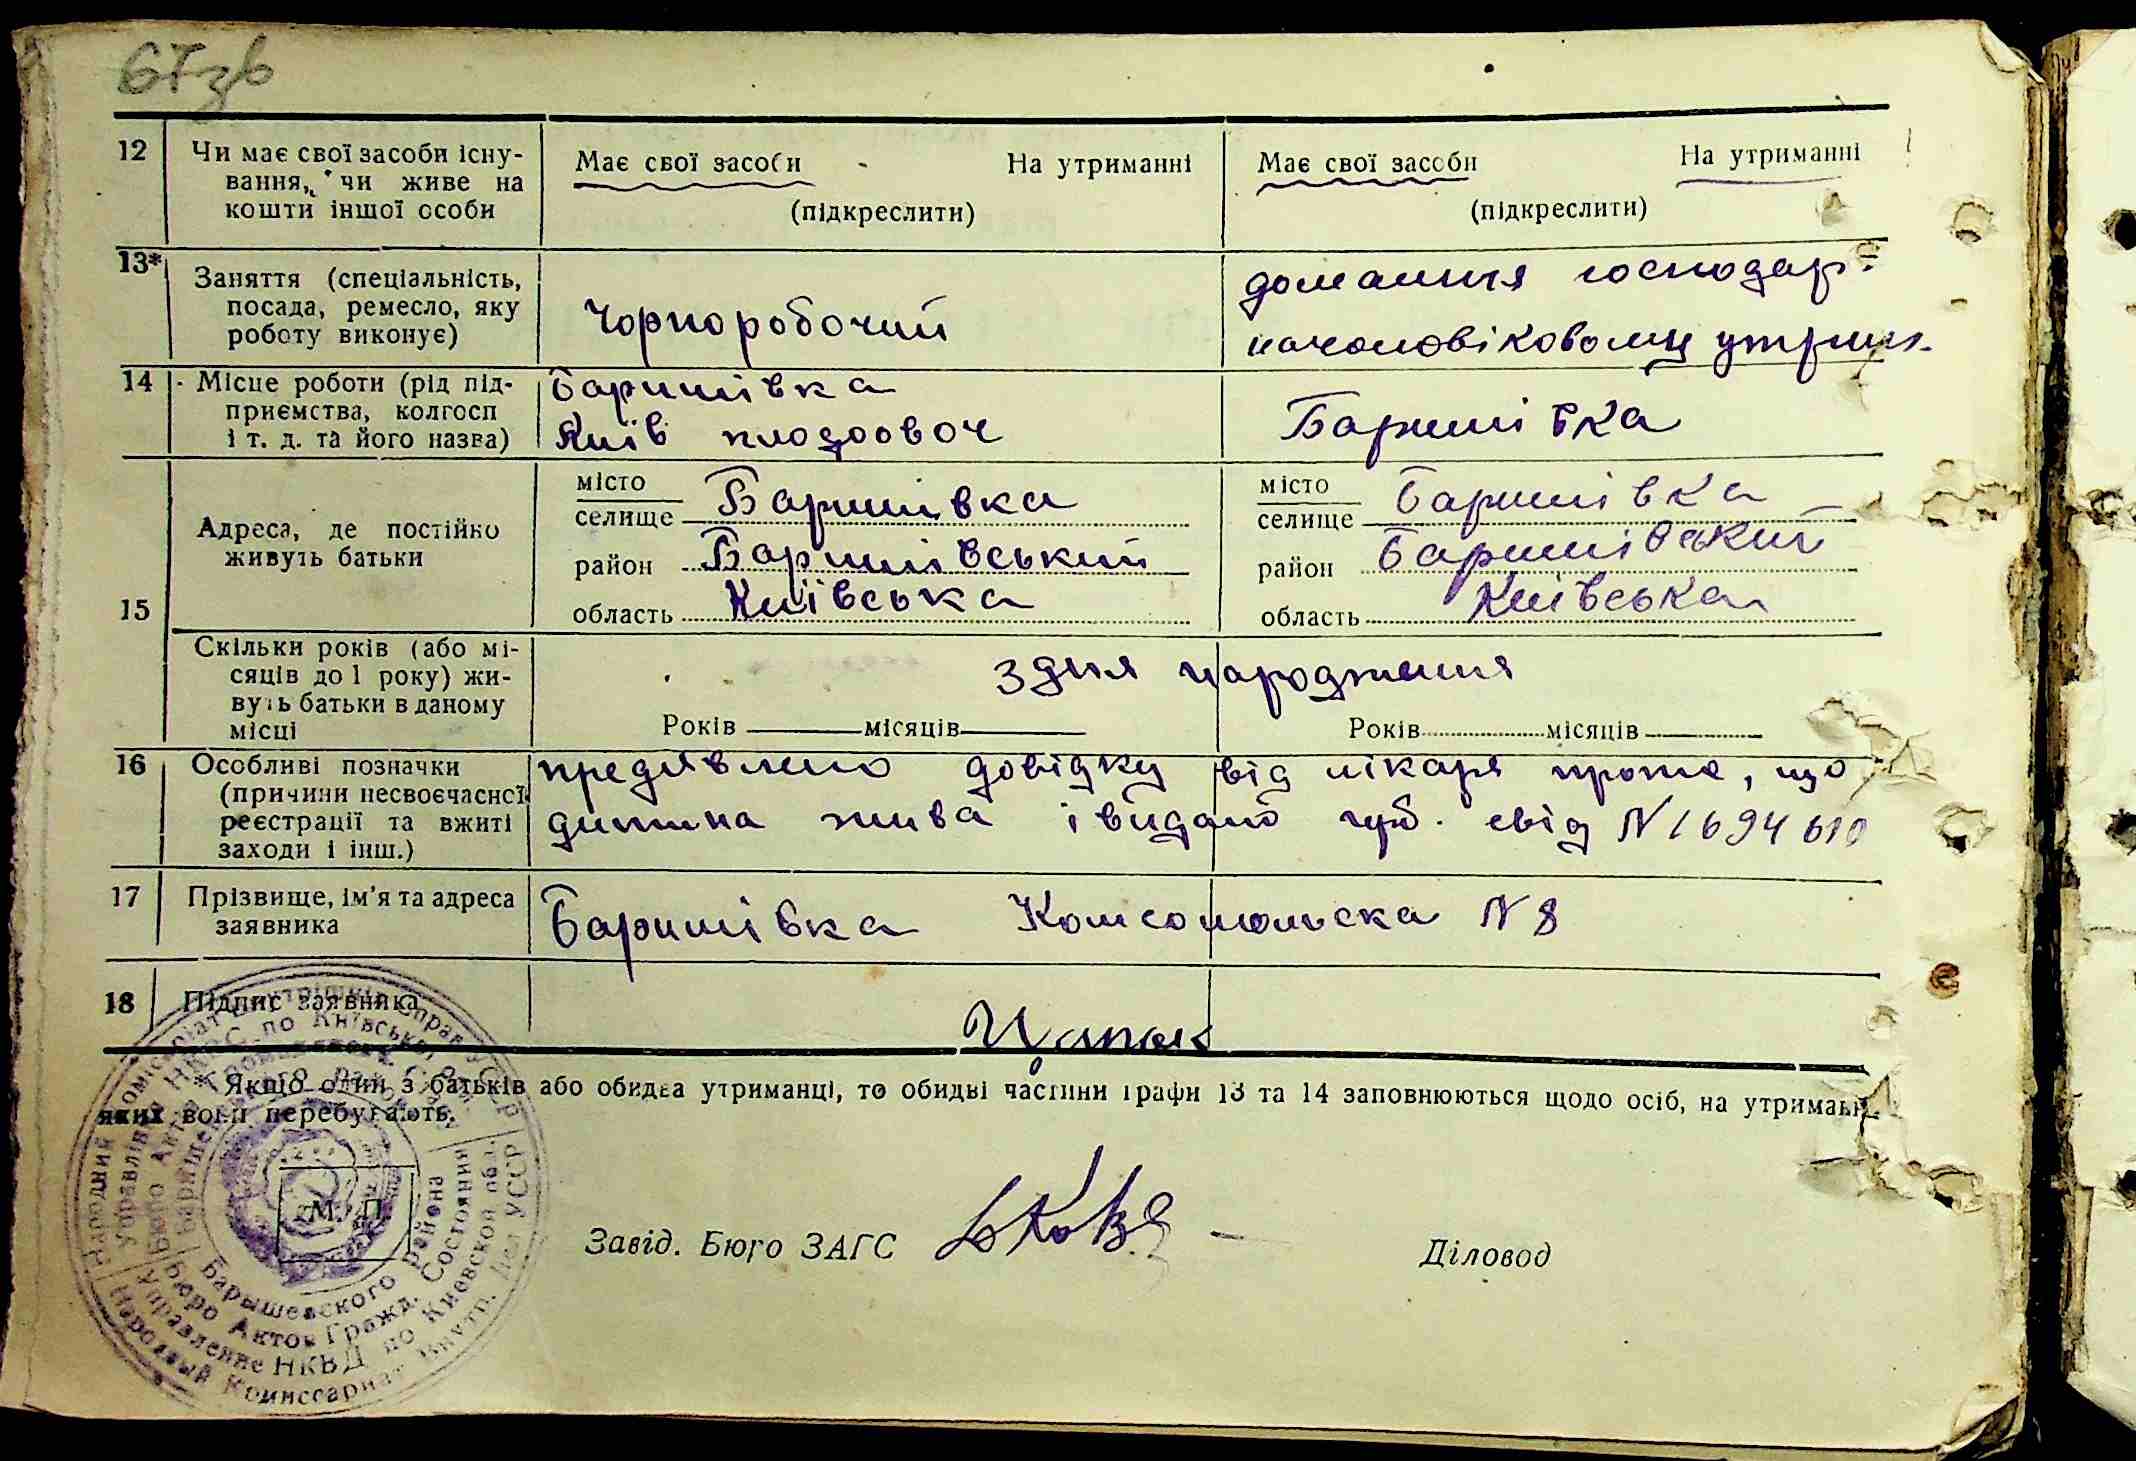 67зв
12 Чи має свої засоби існу- Має свої засоби На утриманні Має свої засоби На утриманні
вання, чи живе на
кошти іншої особи (підкреслити) (підкреслити)
13* Заняття (спеціальність, домашня господар.
посада, ремесло, яку Чорноробочий
роботу виконує) на чоловіковому утрим.
14 Місце роботи (рід під- Баришівка
приємства, колгосп Баришівка
і т. д. та його назва) Київ плодоовоч
місто Баришівка місто Баришівка
селище селище
Адреса, де постійно
живуть батьки район Баришівський район Баришівський
15 область Київська область Київська
Скільки років (або мі-
сяців до 1 року) жи- з дня народження
вуть батьки в даному
місці Років місяців Років місяців
16 Особливі позначки предявлено довідку від лікаря проте, що
(причини несвоєчасної
реєстрації та вжиті дитина жива і видано свід N 1694610
заходи і інш.)
17 Прізвище, ім'я та адреса Баришівка Комсомольска N 8
заявника
18 Підпис заявника
* Якщо один з батьків або обидва утриманці, то обидві частини графи 13 та 14 заповнюються щодо осіб, на утриманні
яких вони перебувають.
М. П.
Завід. Бюро ЗАГС Діловод
Барышевского района
Бюро Актов Гражд. Состояний
Управление НКВД по Киевской обл.
Народный Комиссариат Внутр. Дел УССР